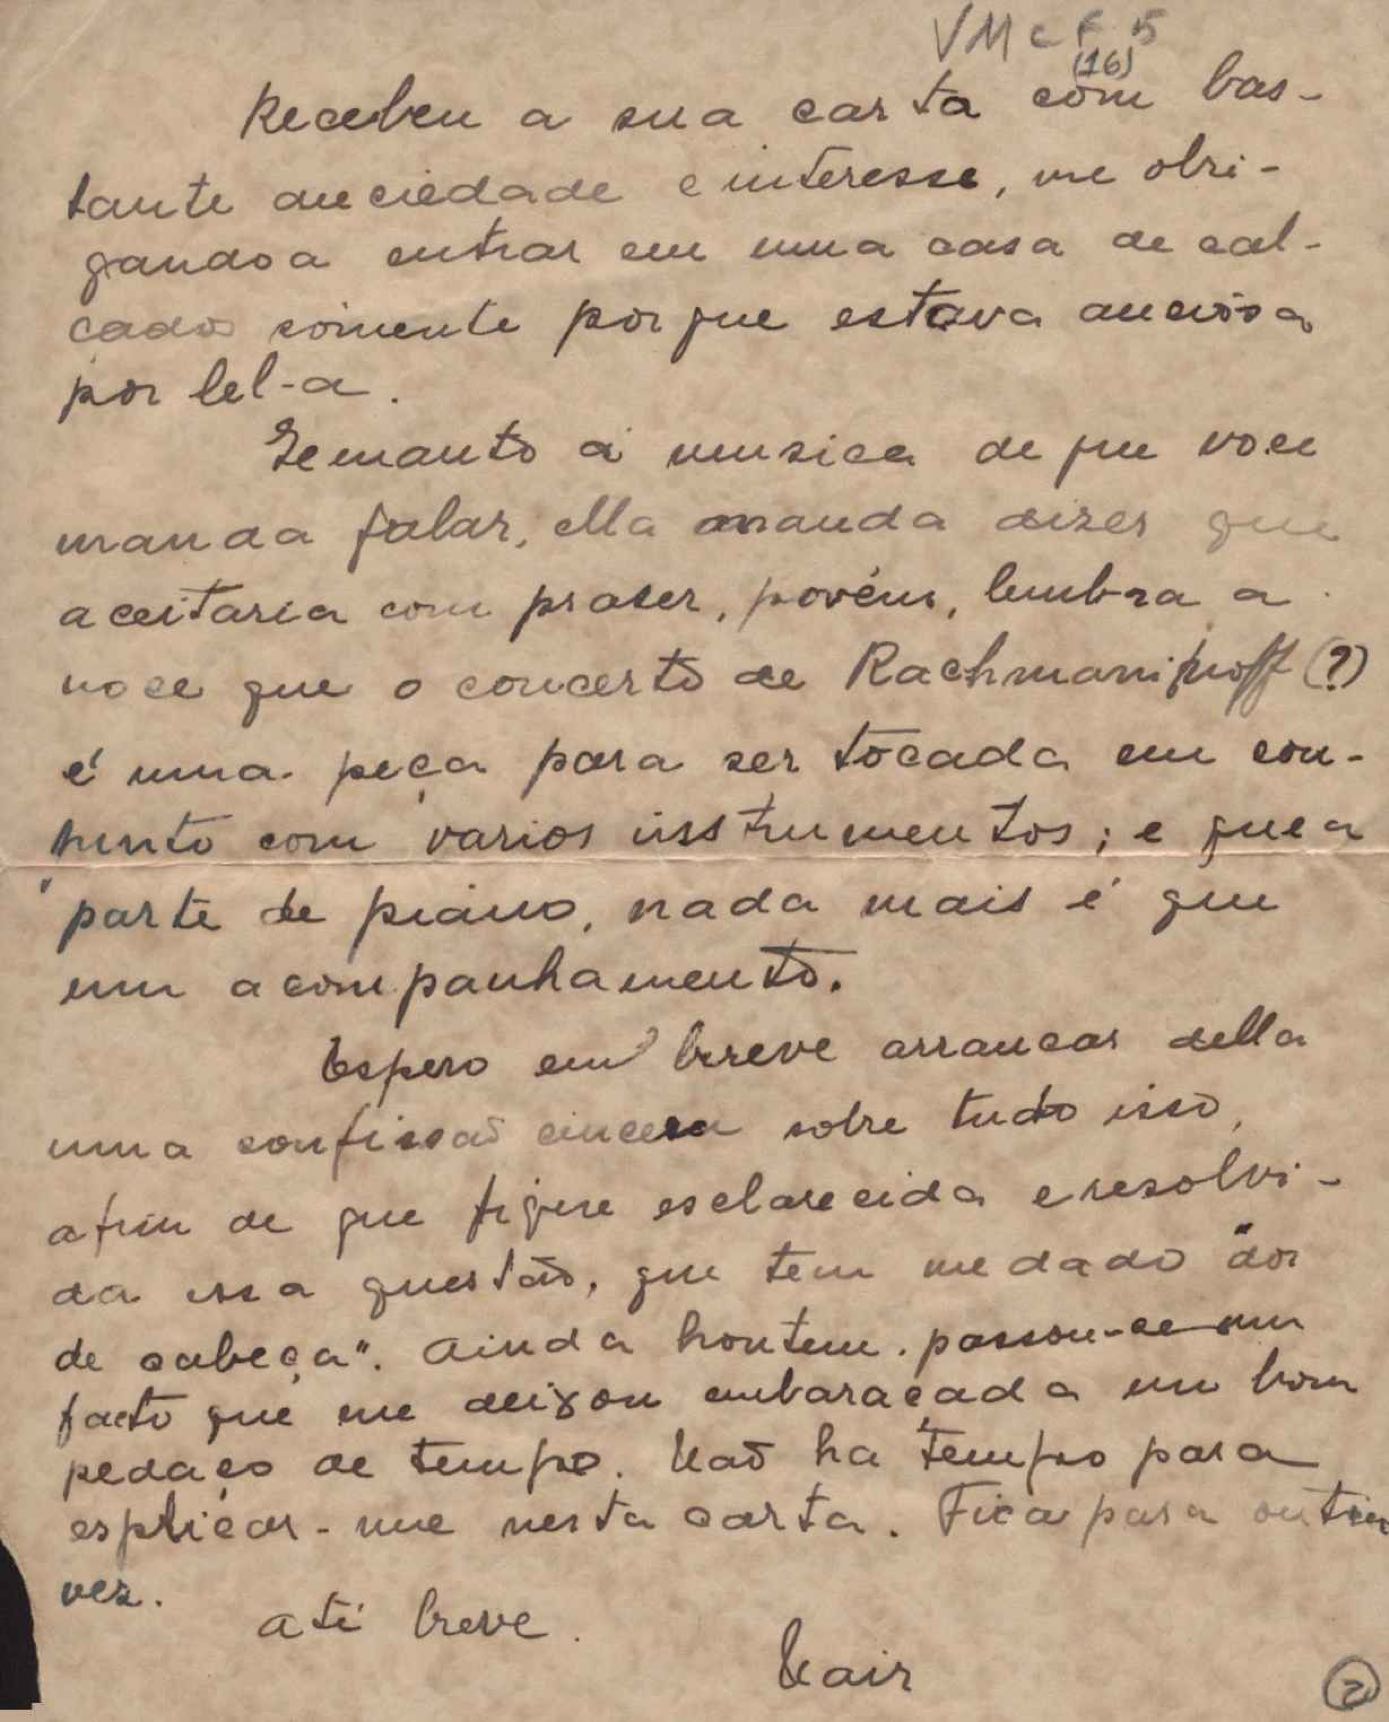 VMcF 5
(16)
Recebeu a sua carta com bas-
tante anciedade e interesse, me obri-
gando a entrar em uma casa de cal-
çados somente porque estava anciosa
por lel-a.
á musica de que voce
manda falar, ella manda dizer que
aceitaria com praser, porém, lembra a
voce que o concerto de Rachmaninoff (?)
é uma peça para ser tocada em con-
junto com varios instrumentos; e que a
parte de piano, nada mais é que
um acompanhamento.
Espero em breve arrancar della
uma confissaõ cincera sobre tudo isso,
afim de que fique esclarecida e resolvi-
da essa questão, que tem me dado "dor
de cabeça". Ainda hontem passou-se um
facto que me deixou embaraçada um bom
pedaço de tempo. Naõ ha tempo para
esplicar-me nesta carta. Fica para outra
vez.
Até breve.
Nair
2